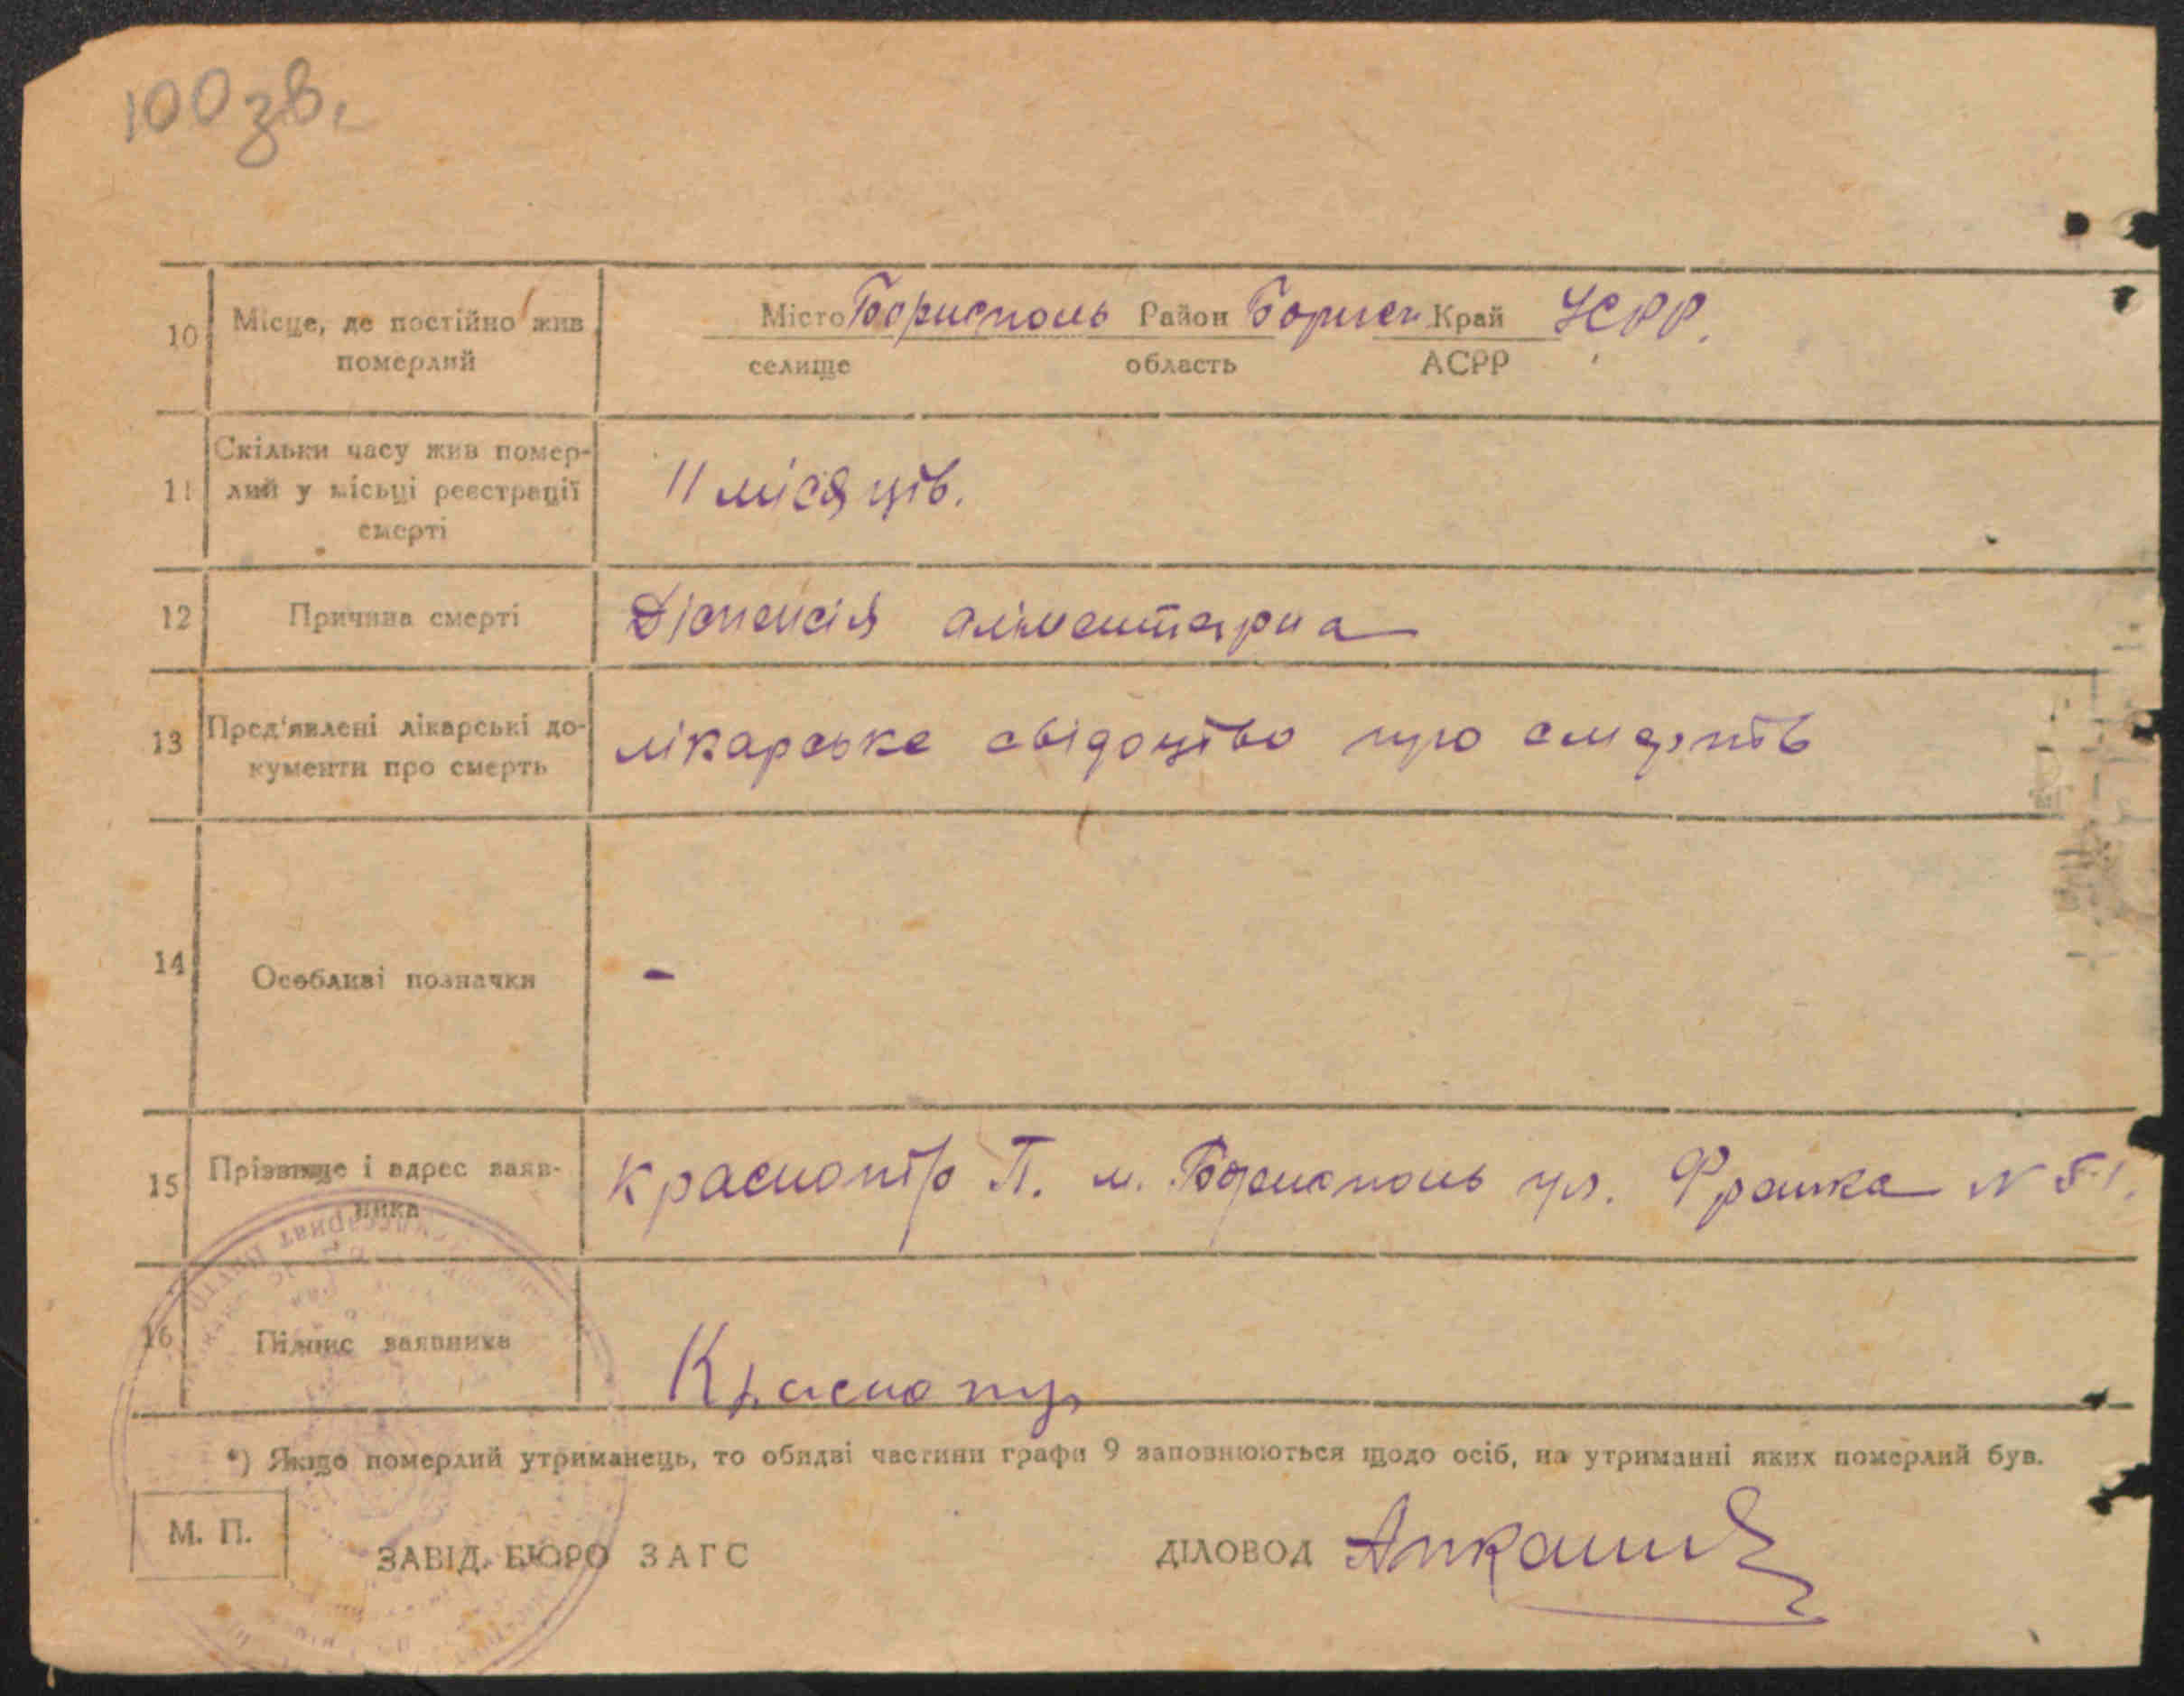 100 зв.
10 Місце, де постійно жив померлий
Місто Бориспoль Район Борисп Край УСРР.
селище область АСРР
11 Скільки часу жив помер-
лий у місці реєстрації
смерті
11 місяців.
12 Причина смерті Діспепсія аліментарна
13 Пред'явлені лікарські до-
кументи про смерть
лікарське свідоцтво про смерть
14 Особливі позначки -
15 Прізвище і адрес заяв-
ника
Краснопір П. м. Бориспoль ул. Франка N 51.
16 Підпис заявника
Краснопір
*) Якщо померлий утриманець, то обидві частини графи 9 заповнюються щодо осіб, на утриманні яких померлий був.
М. П.
ЗАВІД. БЮРО ЗАГС ДІЛОВОД